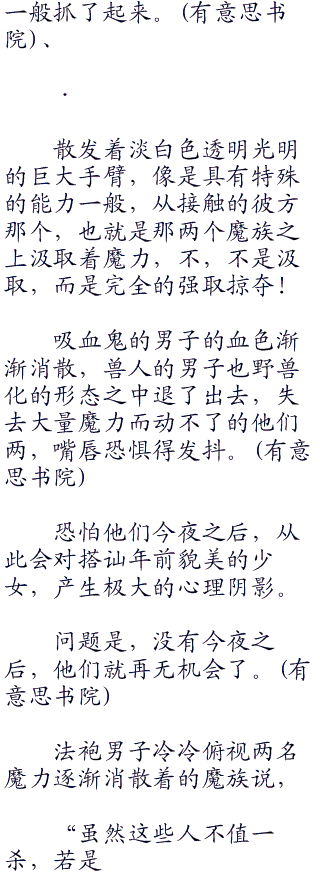 一般抓了起来。（有意思书
院）、
．
散发着淡白色透明光明
的巨大手臂，像是具有特殊
的能力一般，从接触的彼方
那个，也就是那两个魔族之
上汲取着魔力，不，不是汲
取，而是完全的强取掠夺！
吸血鬼的男子的血色渐
渐消散，兽人的男子也野兽
化的形态之中退了出去，失
去大量魔力而动不了的他们
两，嘴唇恐惧得发抖。（有意
思书院）
恐怕他们今夜之后，从
此会对搭讪年前貌美的少
女，产生极大的心理阴影。
问题是，没有今夜之
后，他们就再无机会了。（有
意思书院）
法袍男子冷冷俯视两名
魔力逐渐消散着的魔族说，
“虽然这些人不值一
杀，若是